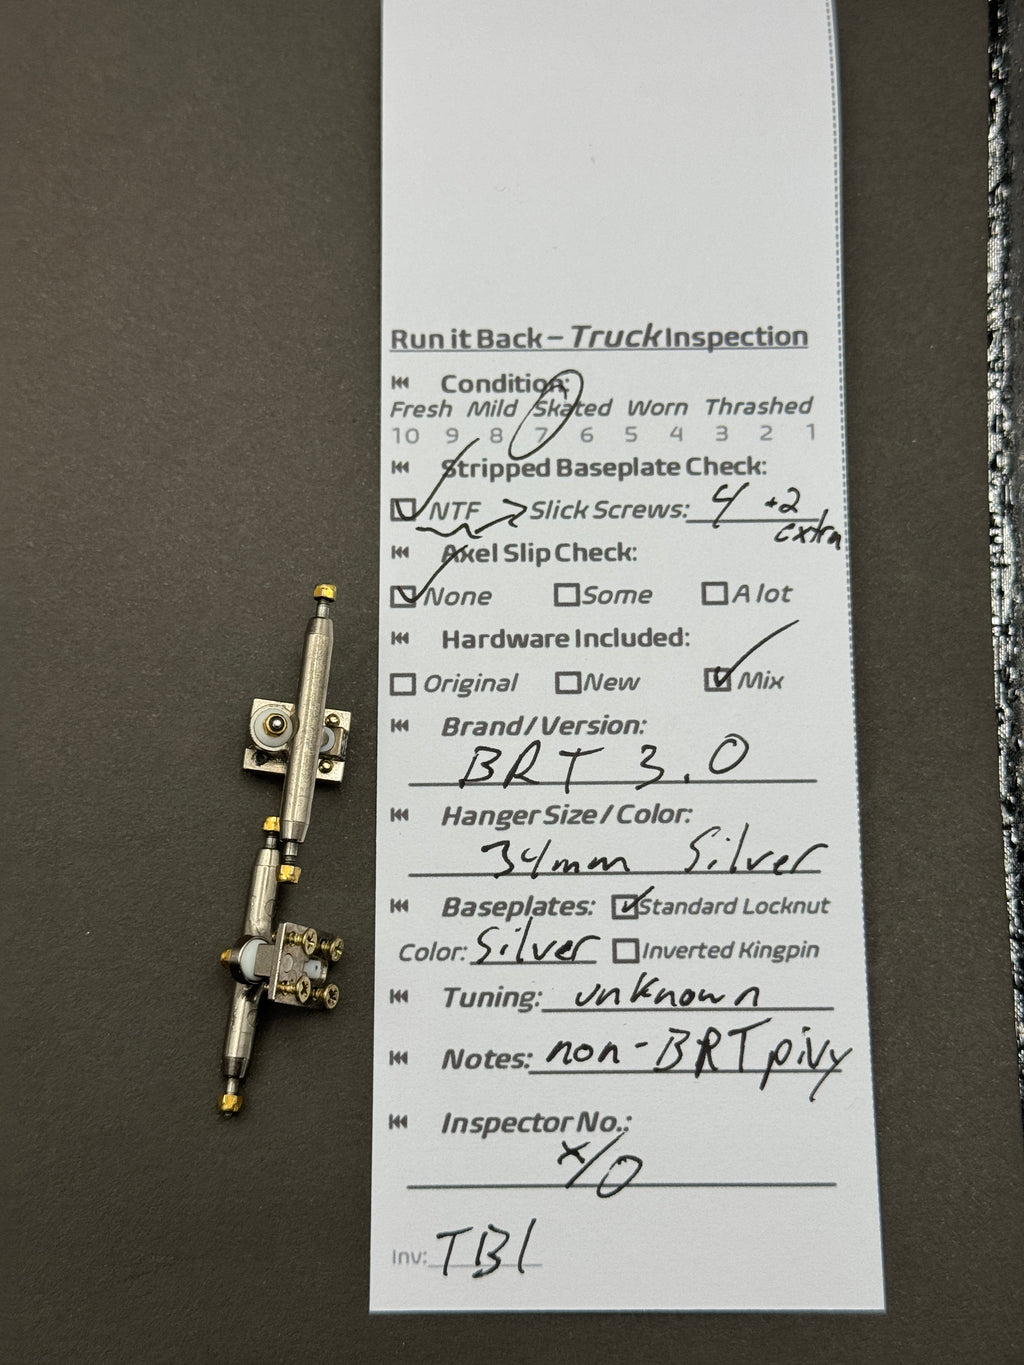 Run it Back – Truck Inspection
Condition:
Fresh Mild Skated Worn Thrashed
10 9 8 7 6 5 4 3 2 1
Stripped Baseplate Check:
NTF Slick Screws: 4 +2
extra
Axel Slip Check:
None Some A lot
Hardware Included:
Original New Mix
Brand / Version:
BRT 3.0
Hanger Size / Color:
34mm Silver
Baseplates: Standard Locknut
Color: Silver Inverted Kingpin
Tuning: unknown
Notes: non-BRT pivy
Inspector No.:
x/O
Inv: TB1